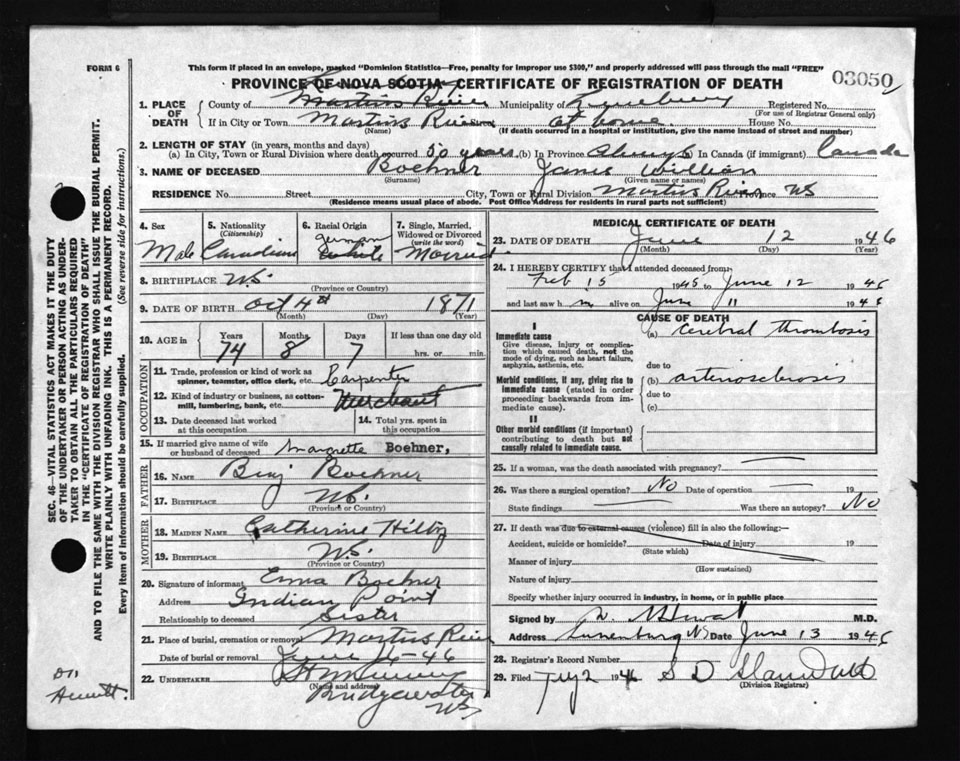 FORM 6
This form if placed in an envelope, marked "Dominion Statistics—Free, penalty for improper use $300," and properly addressed will pass through the mail "FREE"
PROVINCE OF NOVA SCOTIA—CERTIFICATE OF REGISTRATION OF DEATH
03050
1. PLACE OF DEATH { County of Martins River Municipality of Lunenburg Registered No.
(For use of Registrar General only)
If in City or Town Martins River at home. House No.
(Name) (If death occurred in a hospital or institution, give the name instead of street and number)
2. LENGTH OF STAY (in years, months and days)
(a) In City, Town or Rural Division where death occurred 50 years. (b) In Province Always (c) In Canada (if immigrant) Canada
3. NAME OF DECEASED Boehner James William
(Surname) (Given name or names)
RESIDENCE No. Street City, Town or Rural Division Martins River Province NS
(Residence means usual place of abode. Post Office Address for residents in rural parts not sufficient)
4. Sex 5. Nationality (Citizenship) 6. Racial Origin 7. Single, Married, Widowed or Divorced (write the word)
Male Canadian German White Married
8. BIRTHPLACE NS.
(Province or Country)
9. DATE OF BIRTH Oct 4th 1871
(Month) (Day) (Year)
10. AGE in { Years Months Days If less than one day old
74 8 7 hrs. or min.
OCCUPATION
11. Trade, profession or kind of work as spinner, teamster, office clerk, etc. Carpenter
12. Kind of industry or business, as cotton-mill, lumbering, bank, etc. Merchant
13. Date deceased last worked at this occupation 14. Total yrs. spent in this occupation
15. If married give name of wife or husband of deceased Margrette Boehner,
FATHER
16. NAME Benj Boehner
17. BIRTHPLACE NS.
(Province or Country)
MOTHER
18. MAIDEN NAME Catherine Hiltz
19. BIRTHPLACE NS.
(Province or Country)
20. Signature of informant Emma Boehner
Address Indian Point
Relationship to deceased Sister
21. Place of burial, cremation or removal Martins River
Date of burial or removal June 14-46
22. UNDERTAKER
(Name and address)
Bridgewater
NS
MEDICAL CERTIFICATE OF DEATH
23. DATE OF DEATH June 12 1946
(Month) (Day) (Year)
24. I HEREBY CERTIFY that I attended deceased from:
Feb 15 1945 to June 12 1946
and last saw h m alive on June 11 1946
CAUSE OF DEATH
I
Immediate cause (a) cerebral thrombosis
Give disease, injury or complication which caused death, not the mode of dying, such as heart failure, asphyxia, asthenia, etc.
due to
Morbid conditions, if any, giving rise to immediate cause (stated in order proceeding backwards from immediate cause).
(b) arteriosclerosis
due to
(c)
II
Other morbid conditions (if important) contributing to death but not causally related to immediate cause.
25. If a woman, was the death associated with pregnancy?
26. Was there a surgical operation? No Date of operation 19
State findings Was there an autopsy? No
27. If death was due to external causes (violence) fill in also the following:—
Accident, suicide or homicide? Date of injury 19
(State which)
Manner of injury
(How sustained)
Nature of injury
Specify whether injury occurred in industry, in home, or in public place
Signed by M.D.
Address Lunenburg NS Date June 13 1946
28. Registrar's Record Number
29. Filed 2 1946 S D
(Division Registrar)
SEC. 46—VITAL STATISTICS ACT MAKES IT THE DUTY
OF THE UNDERTAKER OR PERSON ACTING AS UNDER-
TAKER TO OBTAIN ALL THE PARTICULARS REQUIRED
IN THE "CERTIFICATE OF REGISTRATION OF DEATH"
AND TO FILE THE SAME WITH THE DIVISION REGISTRAR WHO SHALL ISSUE THE BURIAL PERMIT.
WRITE PLAINLY WITH UNFADING INK. THIS IS A PERMANENT RECORD.
Every item of information should be carefully supplied. (See reverse side for instructions.)